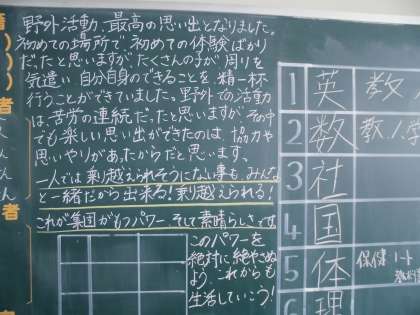 野外活動、最高の思い出となりました。
初めての場所で、初めての体験ばかり
だったと思いますが、たくさんの子が周りを
気遣い自分自身のできることを、精一杯
行うことができていました。野外での活動
は、苦労の連続だったと思いますが、その中
でも楽しい思い出ができたのは協力や
思いやりがあったからだと思います。
一人では乗り越えられそうにない事も、みんな
と一緒だから出来る!乗り越えられる!
これが集団がもつパワー、そして素晴らしさです。
このパワーを
絶対に絶やさぬ
よう、これからも
生活していこう!
者
者
1 英 教
2 数 教
3 社
4 国
5 体 保健 ノート
6 理